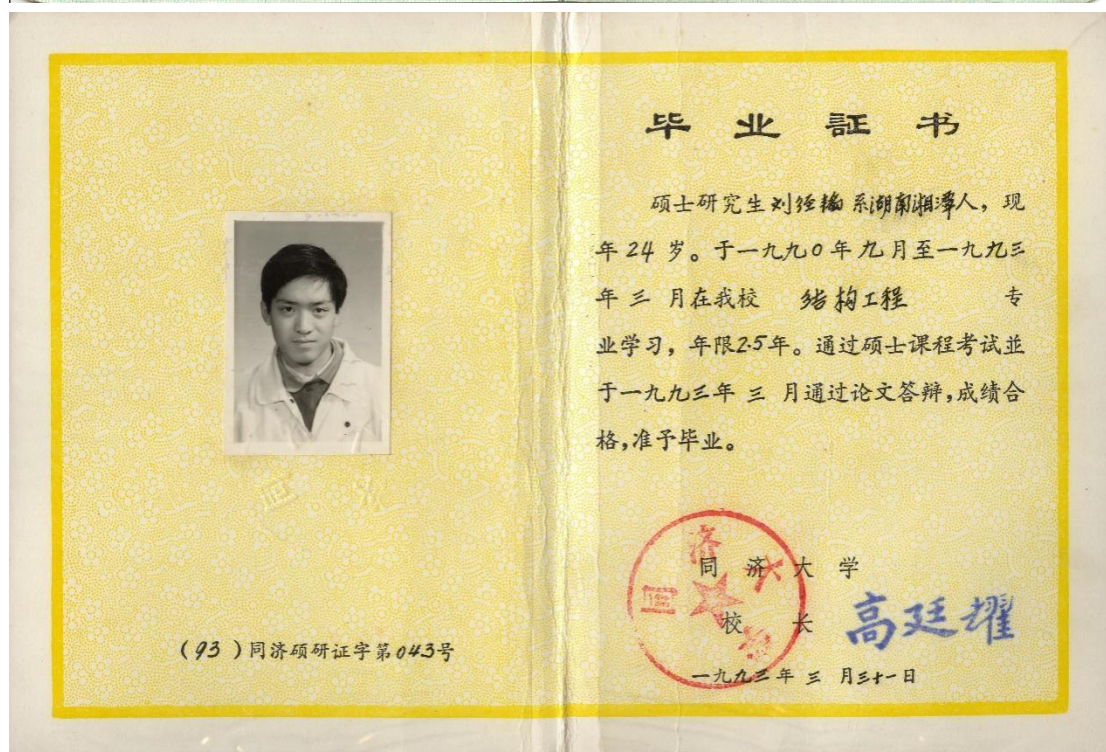 毕业証书
硕士研究生刘经 系湖南湘潭人，现
年24岁。于一九九〇年九月至一九九三
年三月在我校 结构工程 专
业学习，年限2.5年。通过硕士课程考试並
于一九九三年三月通过论文答辩，成绩合
格，准予毕业。
同济大学
同济大学
校长 高廷耀
一九九三年三月三十一日
(93)同济硕研证字第043号